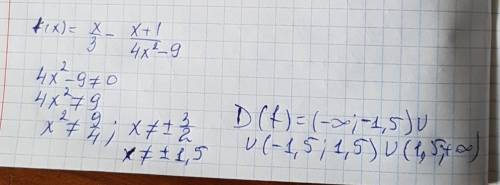 f(x) = x/3 - (x+1)/(4x²-9)
4x²-9≠0
4x²≠9
x²≠9/4; x≠±3/2
x≠±1,5
D(f)=(-∞;-1,5)∪
∪(-1,5;1,5)∪(1,5;+∞)